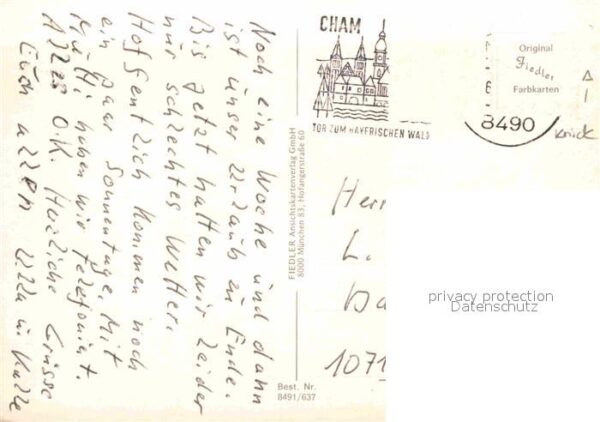 Noch eine Woche und dann
ist unser Urlaub zu Ende.
Bis jetzt hatten wir leider
nur schlechtes Wetter.
Hoffentlich kommen noch
ein paar Sonnentage. Mit
Mutti haben wir telefoniert.
Alles O.K. Herzliche Grüsse
Euch allen Ulla u. Kalle
CHAM
TOR ZUM BAYERISCHEN WALD
8490
Original
Fiedler
Farbkarten
Knick
FIEDLER Ansichtskartenverlag GmbH
8000 München 83, Hofangerstraße 60
Herr
L.
Ba
1071
privacy protection
Datenschutz
Best. Nr.
8491/637